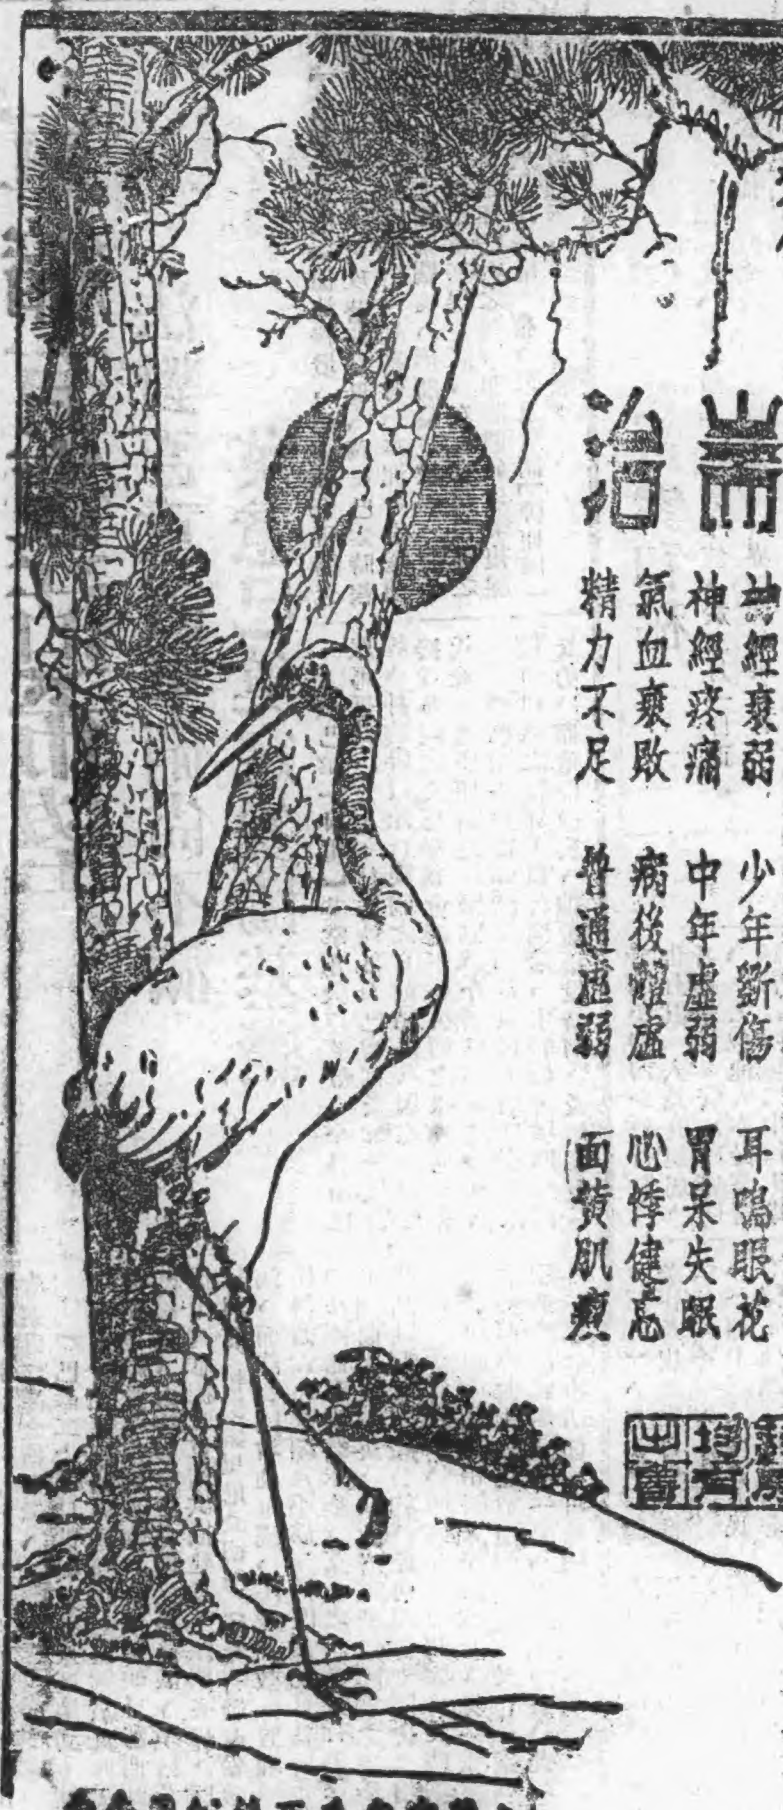 耑治
神經衰弱 少年斲傷 耳鳴眼花
神經疼痛 中年虛弱 胃呆失眠
氣血衰敗 病後虛 心悸健忘
精力不足 普通虛弱 面黃肌瘦
均有
出賣